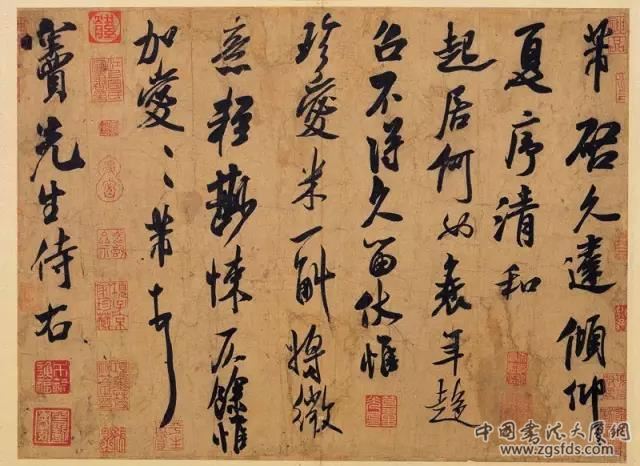 芾啓久違傾仰
夏序清和
起居何如衰年趍
召不得久留伏惟
珍愛米一斛將微
意輕尠悚仄餘惟
加愛〻芾頓首
竇先生侍右
中国書法大廈網
www.zgsfds.com